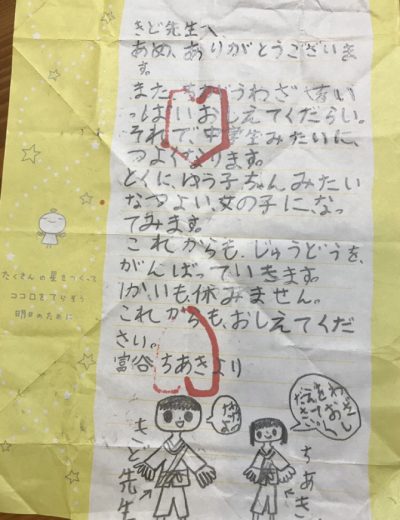 きど先生へ
あめ、ありがとうございま
す。
また、ちがうわざ
っぱいおしえてください。
それで、中学生みたいに、
つよくなります。
とくに、ゆう子ちゃんみたい
なつよい、女の子に、なっ
てみます。
これからも、じゅうどうを、
がんばっていきます。
1かいも、休みません。
これからも、おしえてくだ
さい。
富谷ちあきより
たくさんの星をつくって
ココロをてらそう
明日のために
きど先生
わざを
おしえて
ください。
ちあき